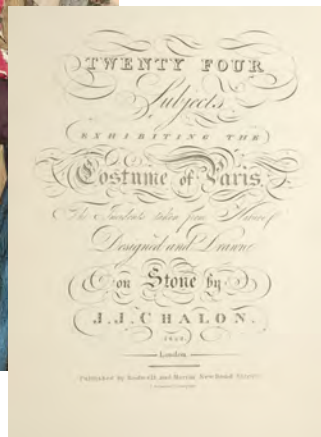 TWENTY FOUR
Subjects
EXHIBITING THE
Costume of Paris.
The Incidents taken from Nature
Designed and Drawn
on Stone by
J. J. CHALON.
London
Published by Rodwell and Martin New Bond Street